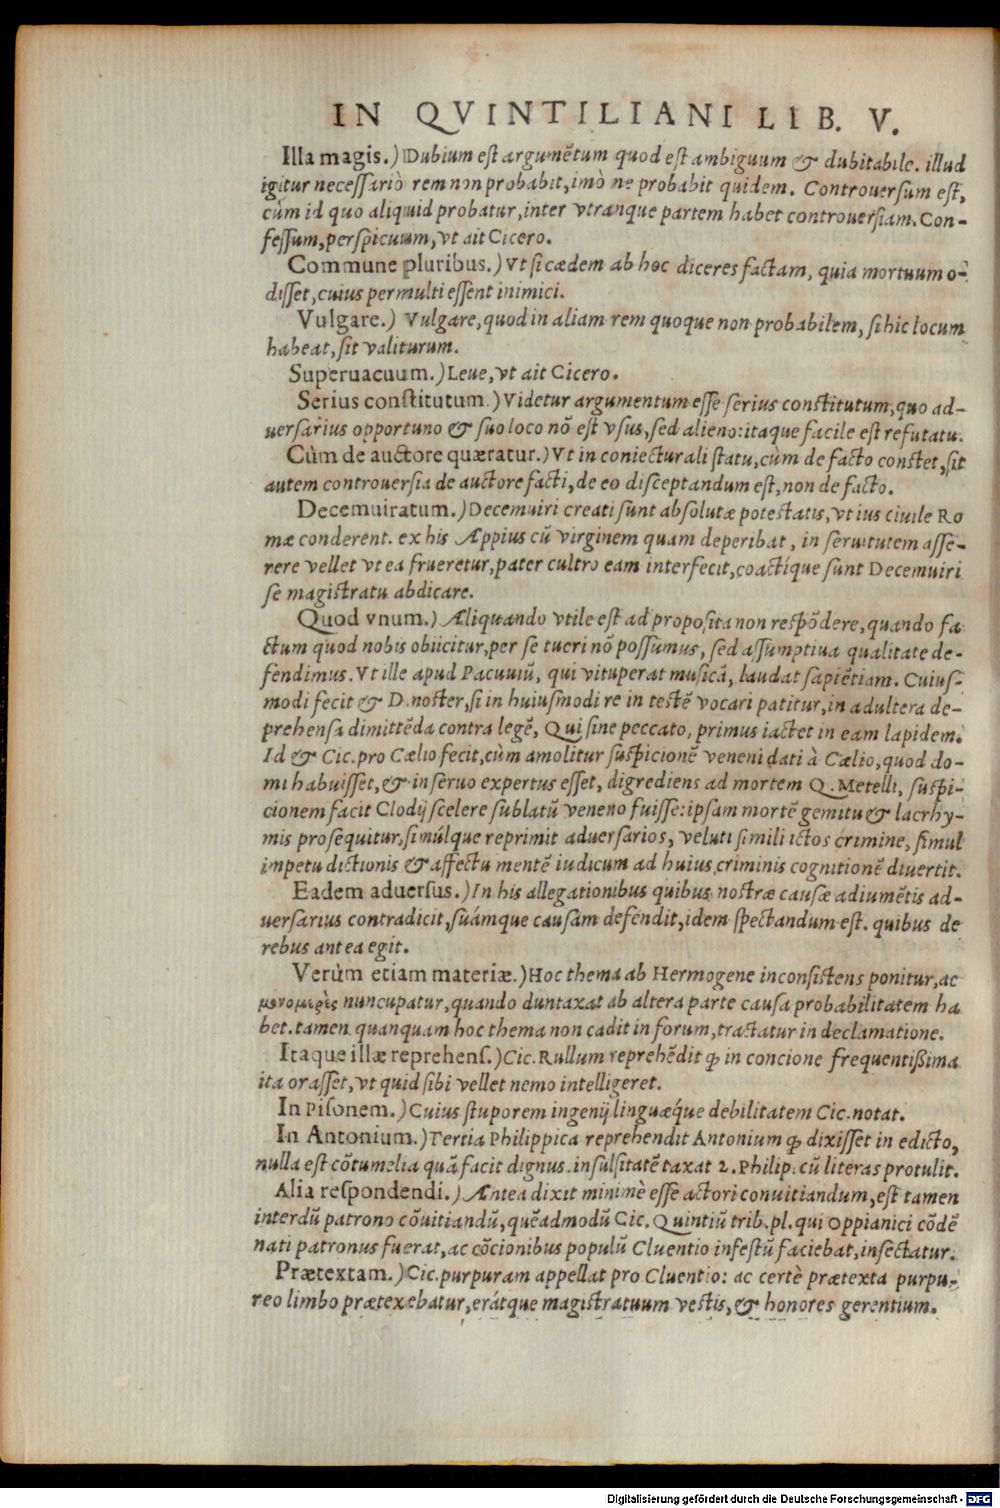 IN QVINTILIANI LIB. V.
Illa magis.) Dubium est argumẽtum quod est ambiguum & dubitabile. illud
igitur necessariò rem non probabit, imò ne probabit quidem. Controuersum est,
cùm id quo aliquid probatur, inter vtranque partem habet controuersiam. Con-
fessum, perspicuum, vt ait Cicero.
Commune pluribus.) Vt si cædem ab hoc diceres factam, quia mortuum o-
disset, cuius permulti essent inimici.
Vulgare.) Vulgare, quod in aliam rem quoque non probabilem, si hic locum
habeat, sit valiturum.
Superuacuum.) Leue, vt ait Cicero.
Serius constitutum.) Videtur argumentum esse serius constitutum, quo ad-
uersarius opportuno & suo loco nõ est vsus, sed alieno: itaque facile est refutatu.
Cùm de auctore quæratur.) Vt in coniecturali statu, cùm de facto constet, sit
autem controuersia de auctore facti, de eo disceptandum est, non de facto.
Decemuiratum.) Decemuiri creati sunt absolutæ potestatis, vt ius ciuile Ro
mæ conderent. ex his Appius cũ virginem quam deperibat, in seruitutem asse-
rere vellet vt ea frueretur, pater cultro eam interfecit, coactíque sunt Decemuiri
se magistratu abdicare.
Quod vnum.) Aliquando vtile est ad proposita non respõdere, quando fa
ctum quod nobis obiicitur, per se tueri nõ possumus, sed assumptiua qualitate de-
fendimus. Vt ille apud Pacuuiũ, qui vituperat musicã, laudat sapiẽtiam. Cuius-
modi fecit & D. noster, si in huiusmodi re in testẽ vocari patitur, in adultera de-
prehensa dimittẽda contra legẽ, Qui sine peccato, primus iactet in eam lapidem.
Id & Cic. pro Cælio fecit, cùm amolitur suspicionẽ veneni dati à Cælio, quod do-
mi habuisset, & in seruo expertus esset, digrediens ad mortem Q. Metelli, suspi-
cionem facit Clodij scelere sublatũ veneno fuisse: ipsam mortẽ gemitu & lacrhy-
mis prosequitur, simúlque reprimit aduersarios, veluti simili ictos crimine, simul
impetu dictionis & affectu mentẽ iudicum ad huius criminis cognitionẽ diuertit.
Eadem aduersus.) In his allegationibus quibus nostræ causæ adiumẽtis ad-
uersarius contradicit, suámque causam defendit, idem spectandum est. quibus de
rebus antea egit.
Verùm etiam materiæ.) Hoc thema ab Hermogene inconsistens ponitur, ac
μονομερὲς nuncupatur, quando duntaxat ab altera parte causa probabilitatem ha
bet. tamen quanquam hoc thema non cadit in forum, tractatur in declamatione.
Itaque illæ reprehens.) Cic. Rullum reprehẽdit ꝙ in concione frequentißima
ita orasset, vt quid sibi vellet nemo intelligeret.
In Pisonem.) Cuius stuporem ingenij linguæq́ue debilitatem Cic. notat.
In Antonium.) Tertia Philippica reprehendit Antonium ꝙ dixisset in edicto,
nulla est cõtumelia quã facit dignus. insulsitatẽ taxat 2. Philip. cũ literas protulit.
Alia respondendi.) Antea dixit minimè esse actori conuitiandum, est tamen
interdũ patrono cõuitiandũ, quẽadmodũ Cic. Quintiũ trib. pl. qui Oppianici cõdẽ
nati patronus fuerat, ac cõcionibus populũ Cluentio infestũ faciebat, insectatur.
Prætextam.) Cic. purpuram appellat pro Cluentio: ac certè prætexta purpu-
reo limbo prætexebatur, erátque magistratuum vestis, & honores gerentium.
Digitalisierung gefördert durch die Deutsche Forschungsgemeinschaft - DFG